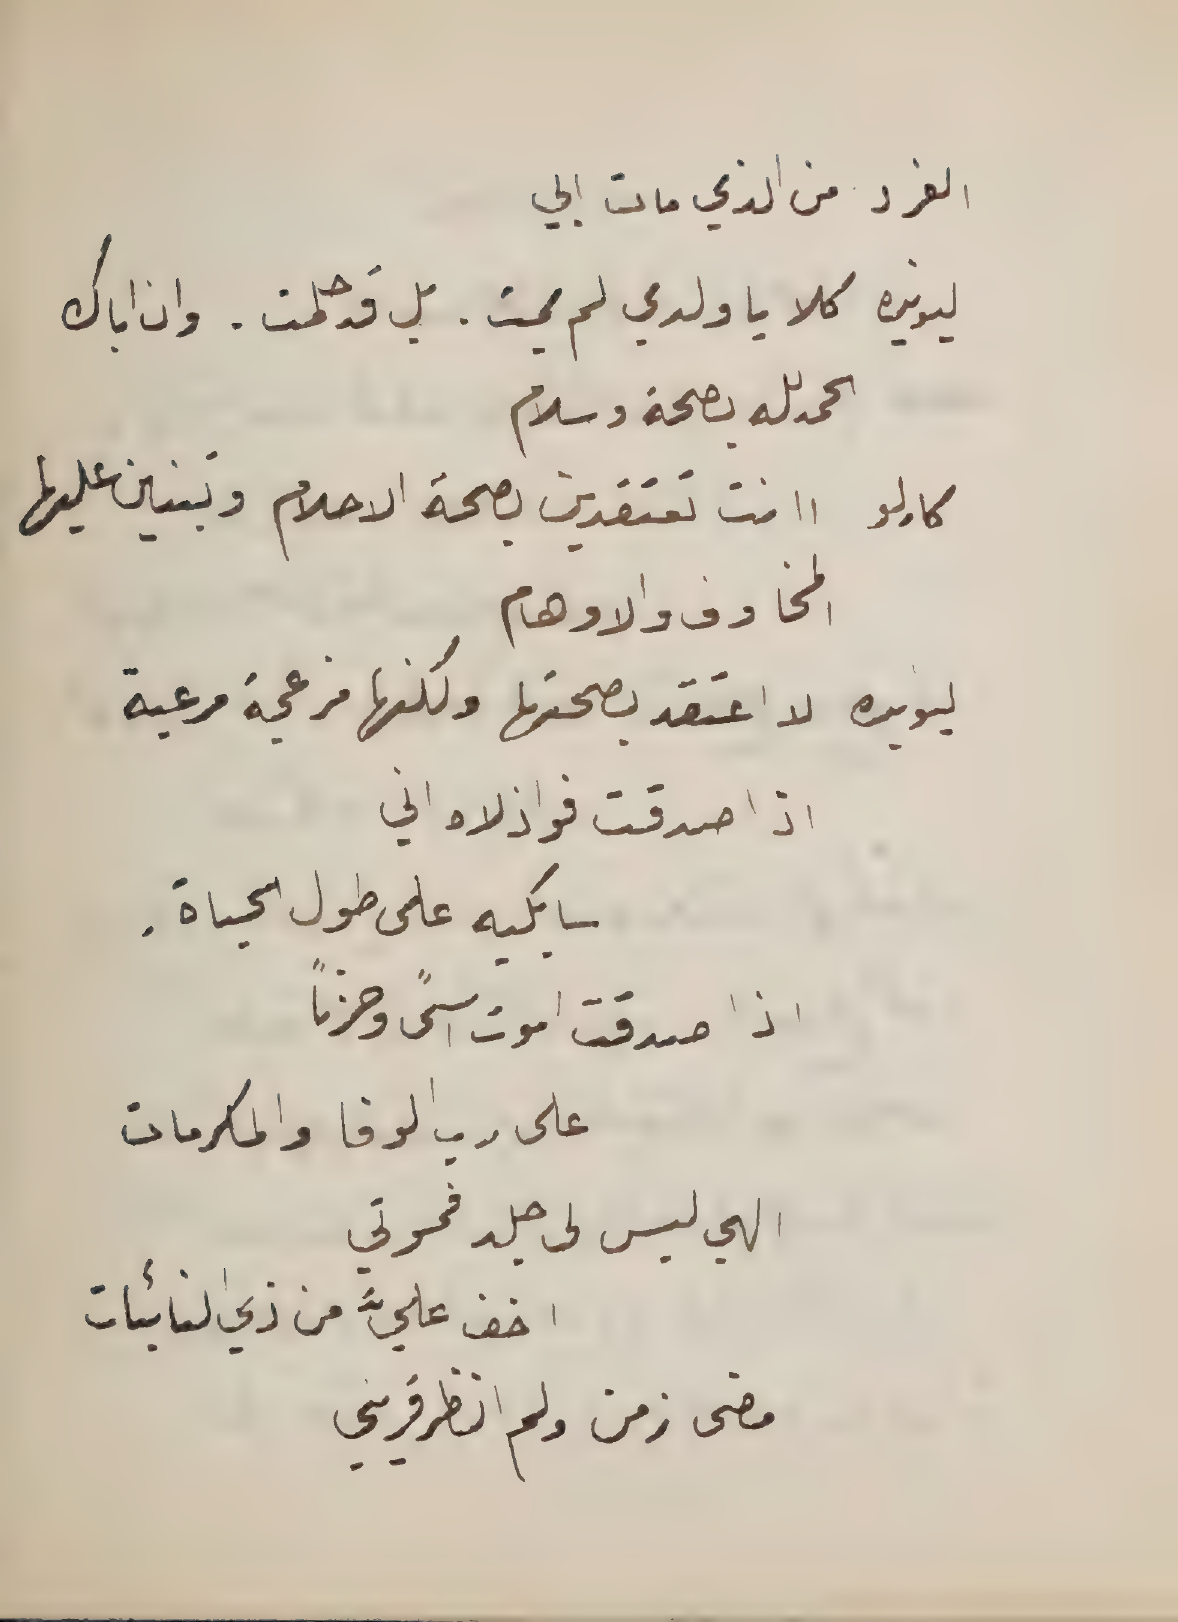 الفرد من الذي مات ابي
ليونيره كلا يا ولدي لم يمت . بل قد حلمت . وان اباك
الحمد لله بصحة وسلام
كارلو اانت تعتقدين بصحة الاحلام وتبنين عليها
المخاوف والاوهام
ليونيره لا اعتقد بصحتها ولكنها مزعجة مرعبة
اذا صدقت فواذلاه اني
سابكيه على طول الحياة .
اذا صدقت اموت اسىً وحزناً
على رب الوفا والمكرمات
الهي ليس لى جلد فموتي
اخف عليَّ من ذي النائبات
مضى زمن ولم انظر قريني